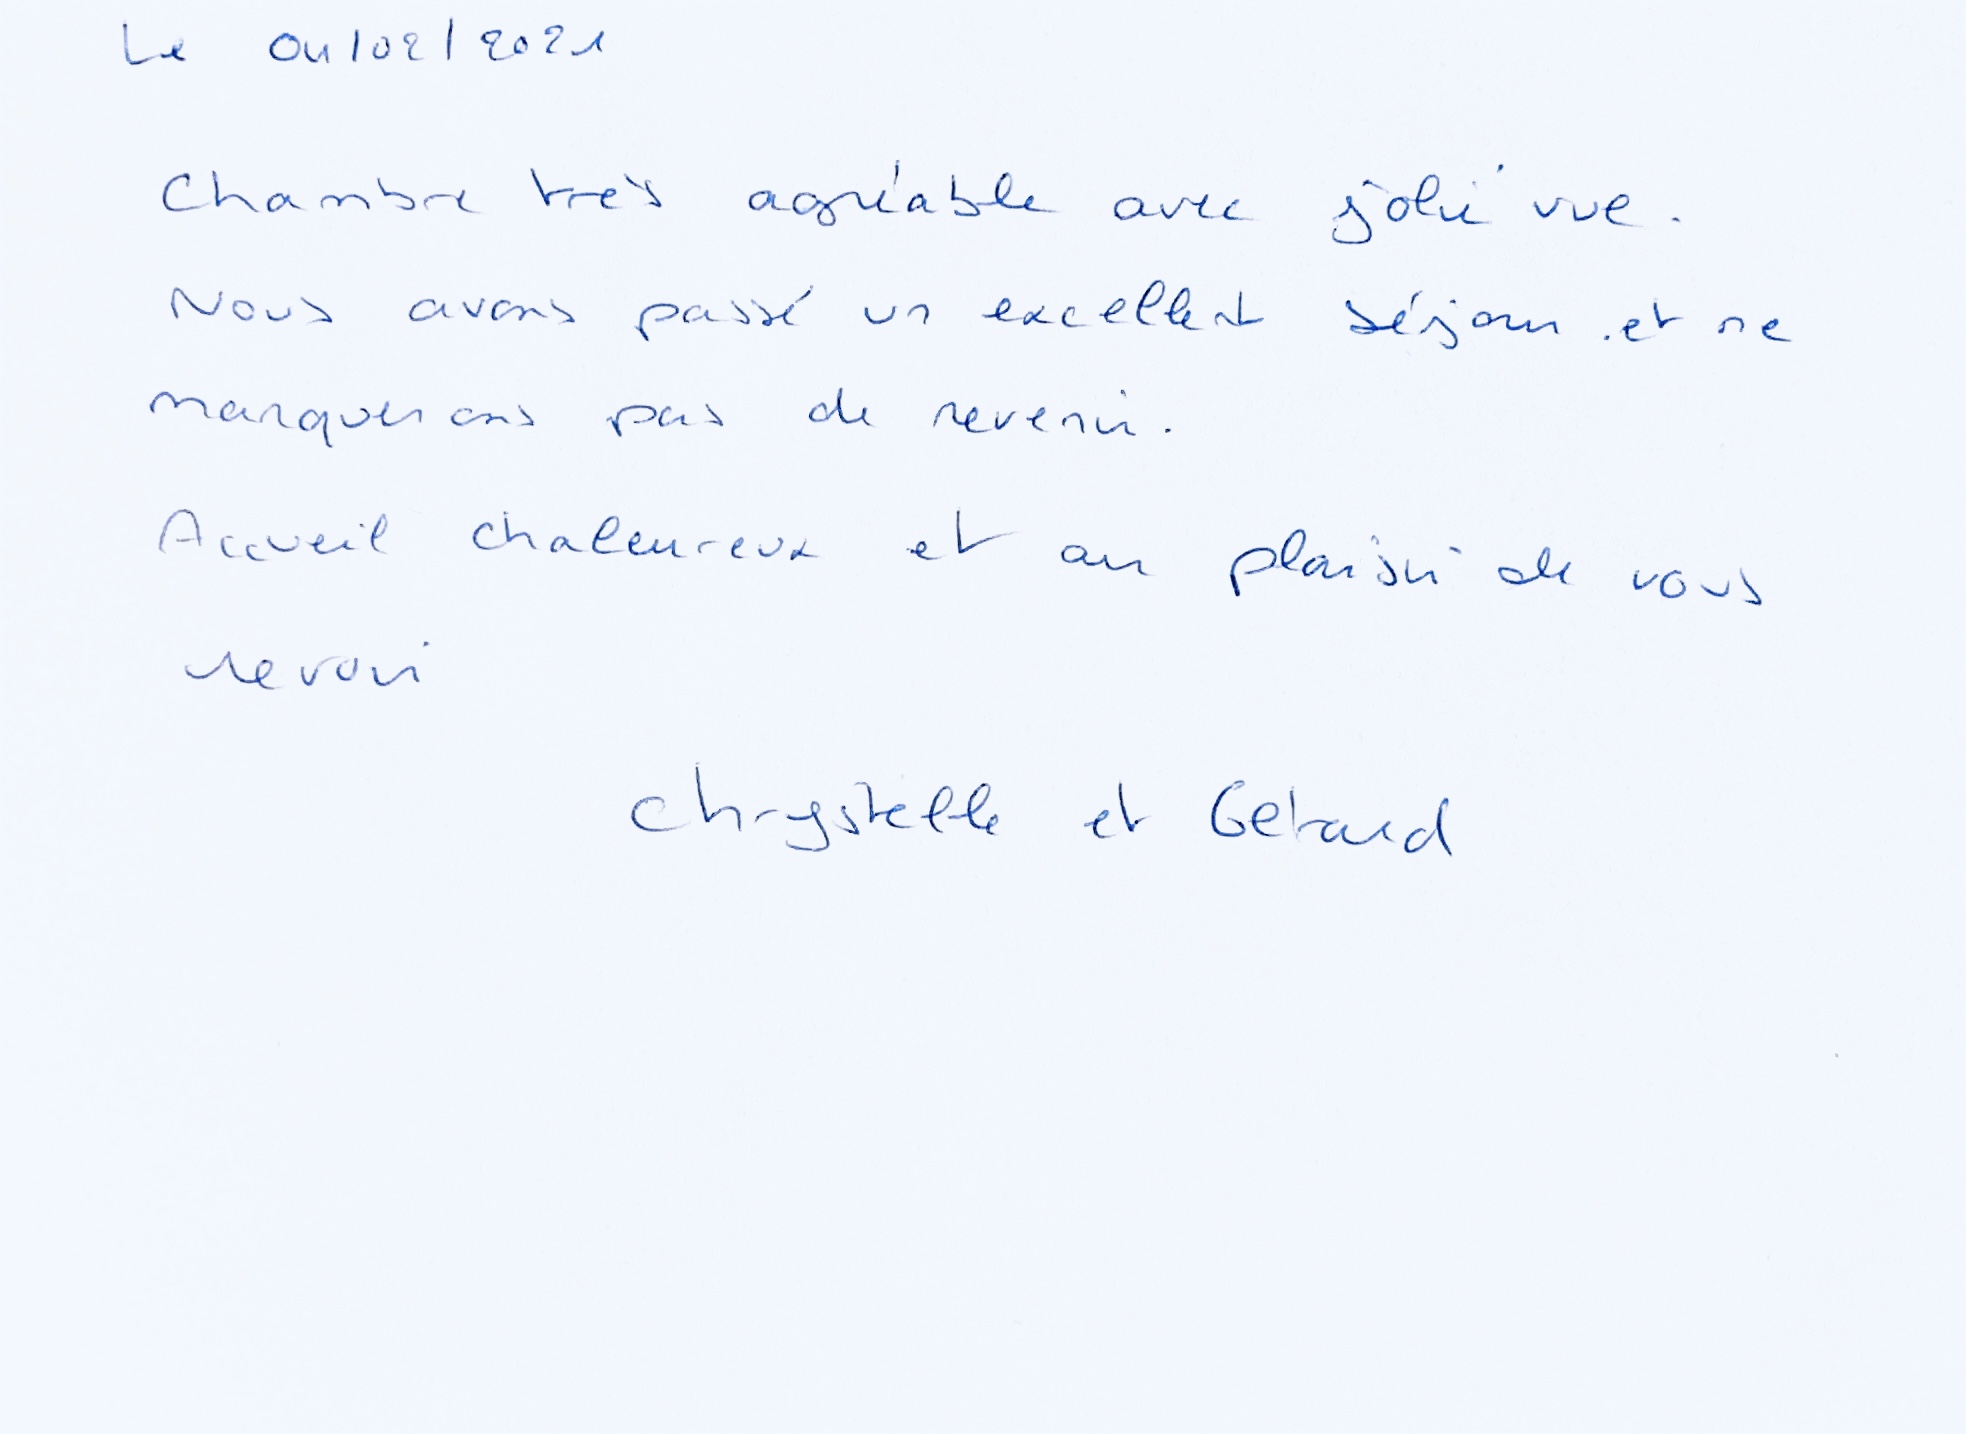 Le 04/02/2021
Chambre très agréable avec jolie vue.
Nous avons passé un excellent séjour et ne
manquerons pas de revenir.
Accueil chaleureux et au plaisir de vous
revoir
Chrystelle et Gérard